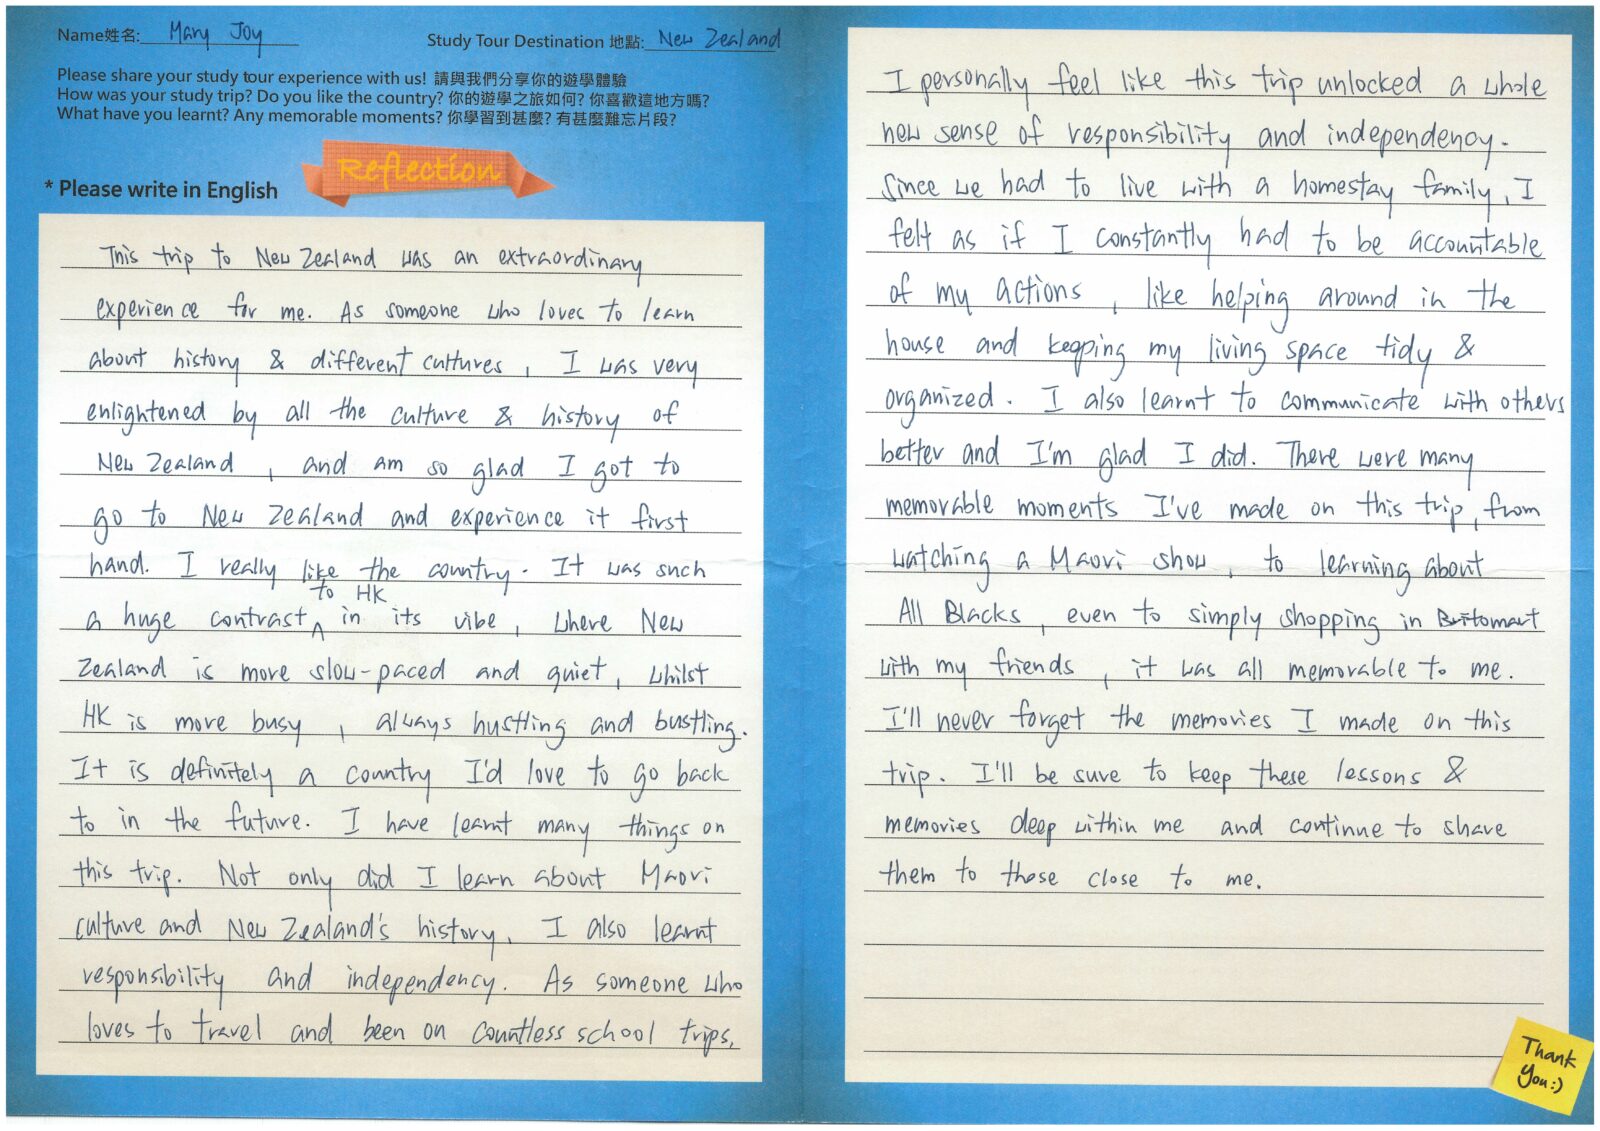 Name姓名: Mary Joy
Study Tour Destination 地點: New Zealand
Please share your study tour experience with us! 請與我們分享你的遊學體驗
How was your study trip? Do you like the country? 你的遊學之旅如何? 你喜歡這地方嗎?
What have you learnt? Any memorable moments? 你學習到甚麼? 有甚麼難忘片段?
Reflection
* Please write in English
This trip to New Zealand was an extraordinary
experience for me. As someone who loves to learn
about history & different cultures, I was very
enlightened by all the culture & history of
New Zealand, and am so glad I got to
go to New Zealand and experience it first
hand. I really like the country. It was such
a huge contrast to HK in its vibe, where New
Zealand is more slow-paced and quiet, whilst
HK is more busy, always hustling and bustling.
It is definitely a country I'd love to go back
to in the future. I have learnt many things on
this trip. Not only did I learn about Maori
culture and New Zealand's history, I also learnt
responsibility and independency. As someone who
loves to travel and been on countless school trips,
I personally feel like this trip unlocked a whole
new sense of responsibility and independency.
Since we had to live with a homestay family, I
felt as if I constantly had to be accountable
of my actions, like helping around in the
house and keeping my living space tidy &
organized. I also learnt to communicate with others
better and I'm glad I did. There were many
memorable moments I've made on this trip, from
watching a Maori show, to learning about
All Blacks, even to simply shopping in Britomart
with my friends, it was all memorable to me.
I'll never forget the memories I made on this
trip. I'll be sure to keep these lessons &
memories deep within me and continue to share
them to those close to me.
Thank
You:)